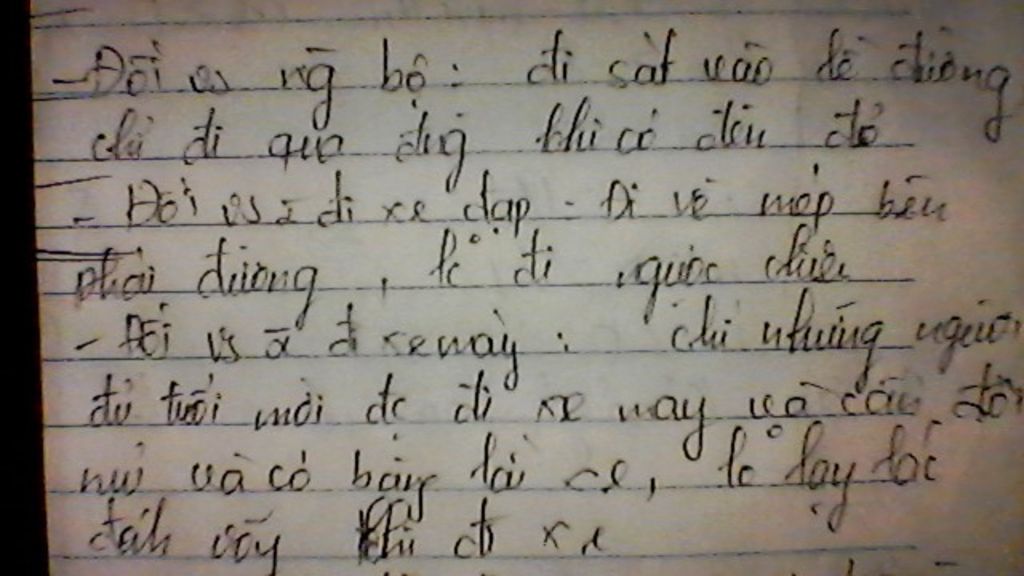 - Đối vs ng̃ bộ: đi sát vào lề đường
chỉ đi qua đg khi có đèn đỏ
- Đối vs ả đi xe đạp - Đi về mép bên
phải đường, k° đi ngược chiều
- Đối vs ả đi xe máy: chỉ những người
đủ tuổi mới đc đi xe máy và cần đội
mũ và có bằng lái xe, k° lạy lốc
đánh võng khi đi xe